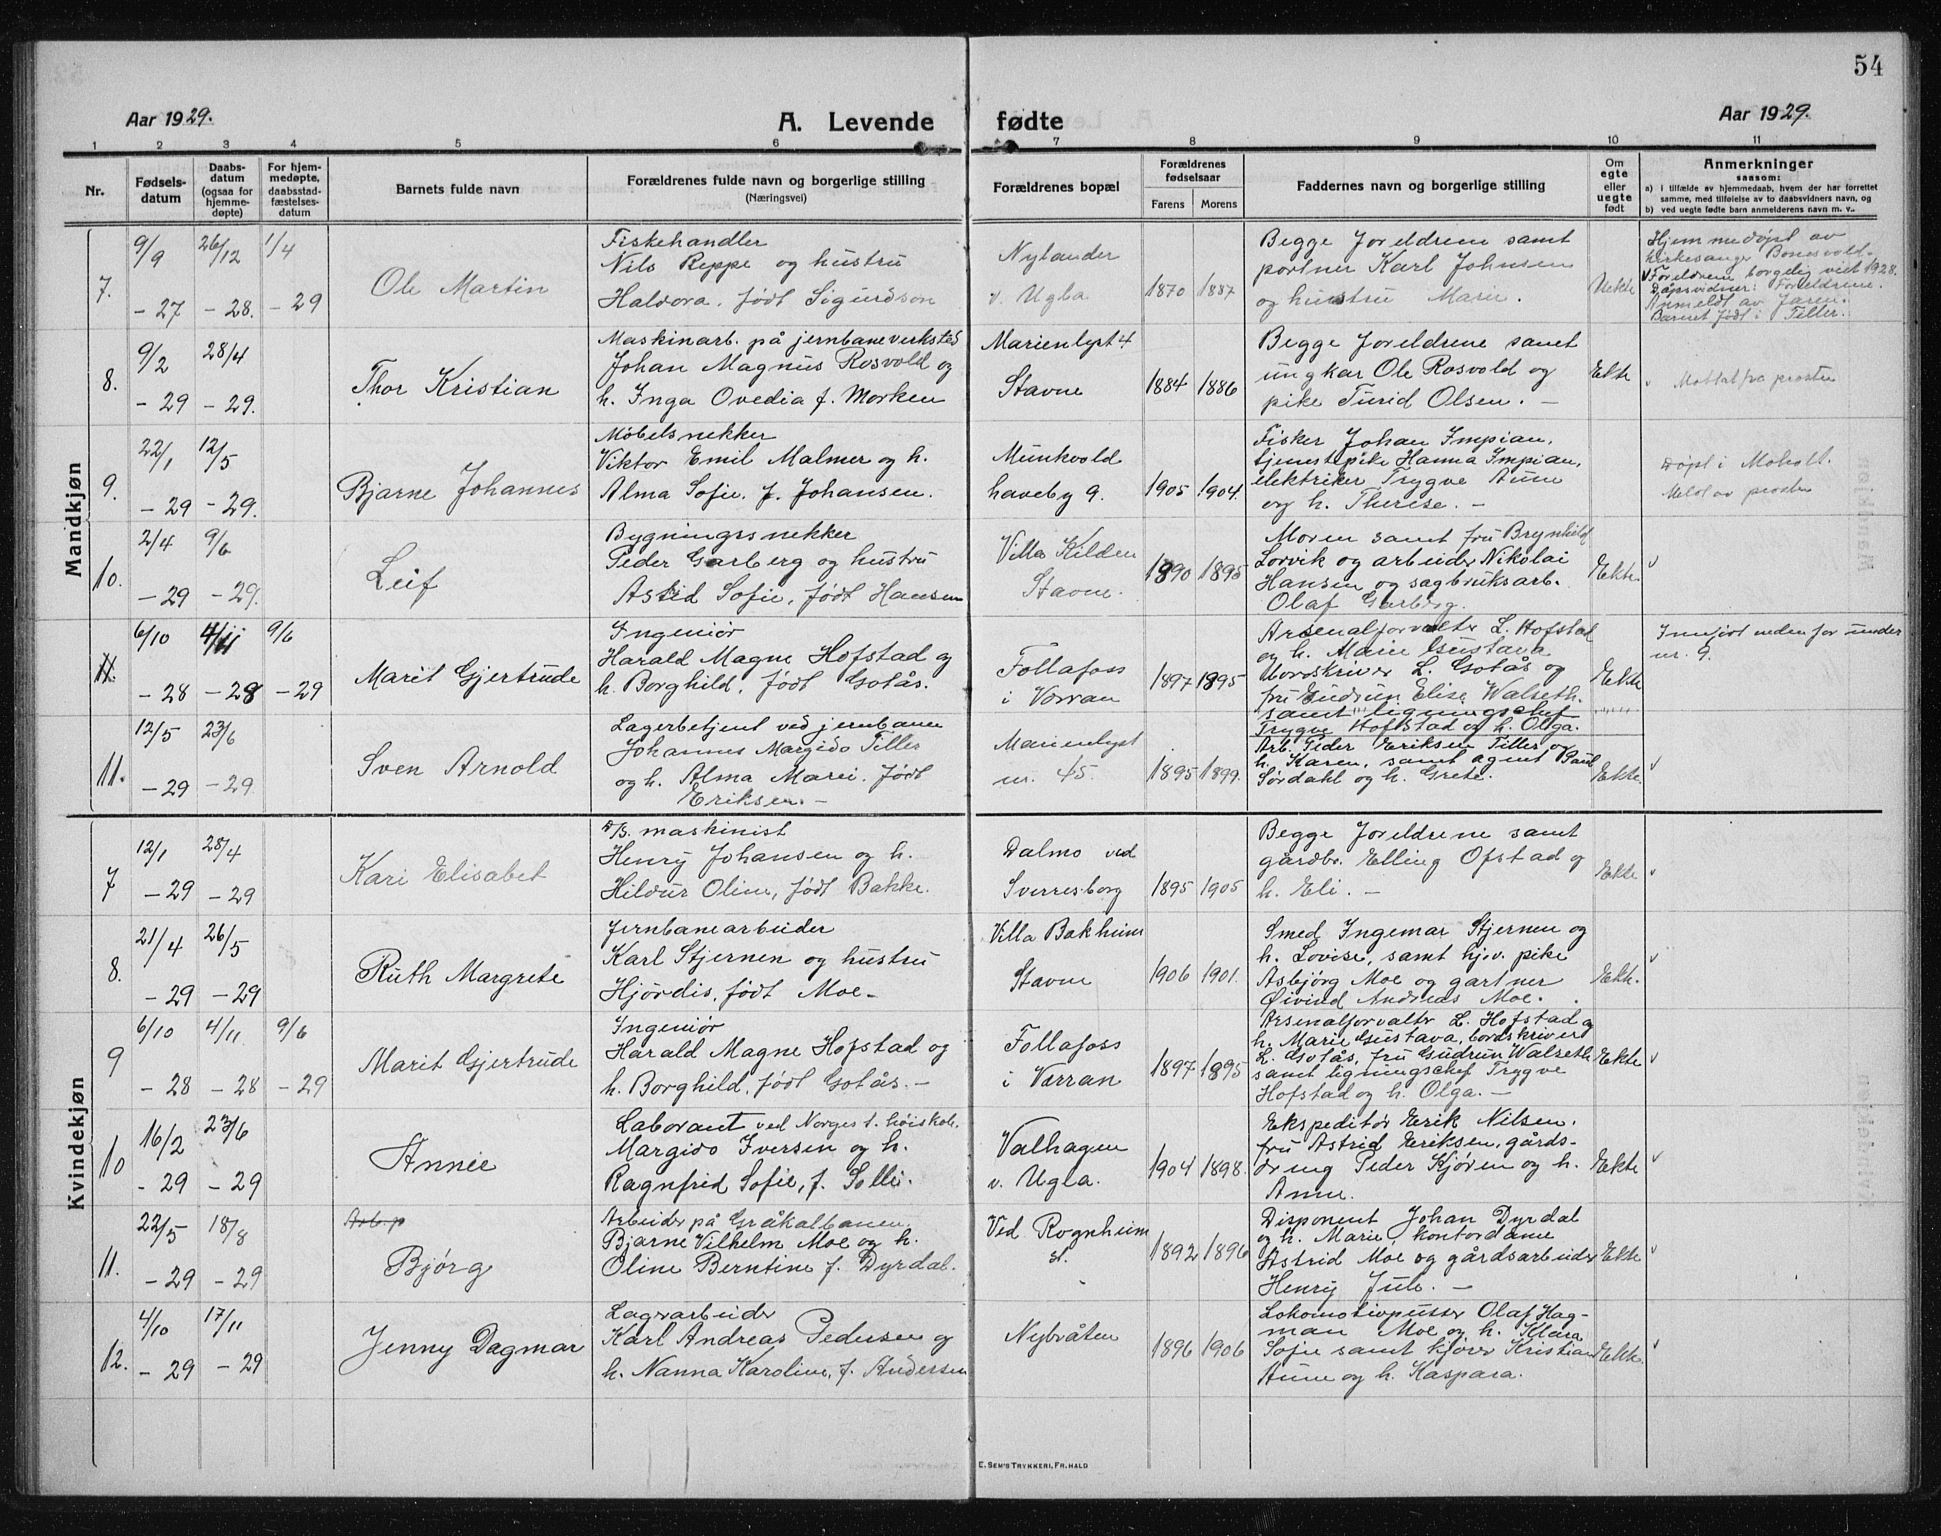 54
Aar 1929.
A. Levende fødte
Aar 1929.
1 2 3 4 5 6 7 8 9 10 11
Nr.
Fødsels-
datum
Daabs-
datum
(ogsaa for
hjemme-
døpte)
For hjem-
medøpte,
daabsstad-
fæstelses-
datum
Barnets fulde navn
Forældrenes fulde navn og borgerlige stilling
(Næringsvei)
Forældrenes bopæl
Forældrenes
fødselsaar
Farens Morens
Faddernes navn og borgerlige stilling
Om
egte
eller
uegte
født
Anmerkninger
saasom:
a) i tilfælde av hjemmedaab, hvem der har forrettet
samme, med tilføielse av to daabsvidners navn, og
b) ved uegte fødte barn anmelderens navn m. v..
Mandkjøn
7.
9/9
- 27
26/12
- 28.
1/4
- 29
Ole Martin
Fiskehandler
Nils Reppe og hustru
Haldora, født Sigurdson
Nylander
v. Ugla
1870 1887
Begge foreldrene samt
portner Karl Johnsen
og hustru Marie.
Uekte
Hjemmedøpt av
kirkesanger Bonesvold.
Foreldrene borgelig viet 1928.
Dåpsvidner: Foreldrene.
Anmeldt av faren.
Barnet født i Tiller.
8.
9/2
- 29
28/4
- 29.
Thor Kristian
Maskinarb. på jernbaneverksted
Johan Magnus Rosvold og
h. Inga Ovedia f. Morken
Marienlyst 4
Stavne
1884 1886
Begge foreldrene samt
ungkar Ole Rosvold og
pike Turid Olsen. -
Ekte
v Mottat fra prosten
9.
22/1
- 29
12/5
- 29.
Bjarne Johannes
Møbelsnekker
Viktor Emil Malmer og h.
Alma Sofie. f. Johansen.
Munkvold
haveby 9.
1905 1904.
Fisker Johan Impian,
tjenestepike Hanna Impian,
elektriker Trygve Aune
og h. Therese. -
Døpt i Moholt.
Meldt av prosten
10.
2/4
- 29
9/6
- 29.
Leif
Bygningssnekker
Peder Garberg og hustru
Astrid Sofie, født Hansen
Villa Kilden
Stavne.
1890 1895
Moren samt fru Brynhild
Lorvik og arbeider Nikolai
Hansen og sagbruksarb.
Olaf Garberg.
Ekte. v
11.
6/10
- 28
4/11
- 28
9/6
- 29
Marit Gjertrude
Ingeniør
Harald Magne Hofstad og
h. Borghild, født Gotås.
Follafoss
i Verran
1897 1895
Arsenalforvalter L. Hofstad
og h. Marie Gustava
bordskriver L. Gotås og
fru Gudrun Elise Walseth.
samt ligningschef
Trygve Hofstad og h. Olga.
Ekte
Innført nedenfor under
nr. 9.
11.
12/5
- 29
23/6
- 29.
Sven Arnold
Lagerbetjent ved jernbanen
Johannes Margido Tiller
og h. Alma Marie. født
Eriksen. -
Marienlyst
nr. 45.
1895 1899.
Arb. Peder Eriksen Tiller og
h. Karen, samt agent Paul
Sørdahl og h. Grete.
Ekte. v
Kvindekjøn
7
12/1
- 29
28/4
- 29
Kari Elisabet
D/S. maskinist
Henry Johansen og h.
Hildur Oline, født Bakke.
Dalmo ved
Sverresborg
1895 1905
Begge foreldrene samt
gårdbr. Elling Ofstad og
h. Eli. -
Ekte v
8.
21/4
- 29
26/5
- 29
Ruth Margrete
Jernbanearbeider
Karl Stjernen og hustru
Hjørdis, født Moe.
Villa Bakheim
Stavne
1906 1901.
Smed Ingemar Stjernen og
h. Lovise, samt hjv. pike
Asbjørg Moe og gartner
Øivind Andreas Moe.
Ekte. v
9
6/10
- 28
4/11
- 28
9/6
- 29
Marit Gjertrude
Ingeniør
Harald Magne Hofstad og
h. Borghild, født Gotås. -
Follafoss
i Verran
1897 1895
Arsenalforvalter L. Hofstad og
h. Marie Gustava, bordskriver
L. Gotås, fru Gudrun Walseth
samt ligningschef Trygve
Hofstad og h. Olga. -
Ekte v
10
16/2
- 29
23/6
- 29
Annie
Laborant ved Norges t. høiskole.
Margido Iversen og h.
Ragnfrid Sofie, f. Solli.
Valhagen
v. Ugla.
1904 1898.
Ekspeditør Erik Nilsen.
fru Astrid Eriksen, gårds-
dreng Peder Kjøren og h.
Anne.
Ekte v
11.
22/5
- 29
18/8
- 29
Arb. p
Bjørg
Arbeider på Gråkalbanen.
Bjarne Vilhelm Moe og h.
Oline Berntine f. Dyrdal.
Ved Rognheim
st.
1892 1896
Disponent Johan Dyrdal
og h. Marie, kontordame
Astrid Moe og gårdsarbeider
Henry Jule. -
Ekte v
12.
4/10
- 29
17/11
- 29
Jenny Dagmar
Lagerarbeider
Karl Andreas Pedersen og
h. Nanna Karoline, f. Andersen
Nybråten
1896 1906
Lokomotivpusser Olaf Hag-
man Moe og h. Klara
Sofie samt kjører Kristian
Aune og h. Kaspara.
Ekte. v
E. SEM'S TRYKKERI, FR.HALD